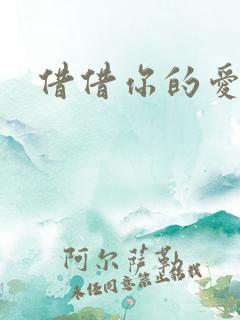 借借你的爱
阿尔萨勒
未经同意禁止转载